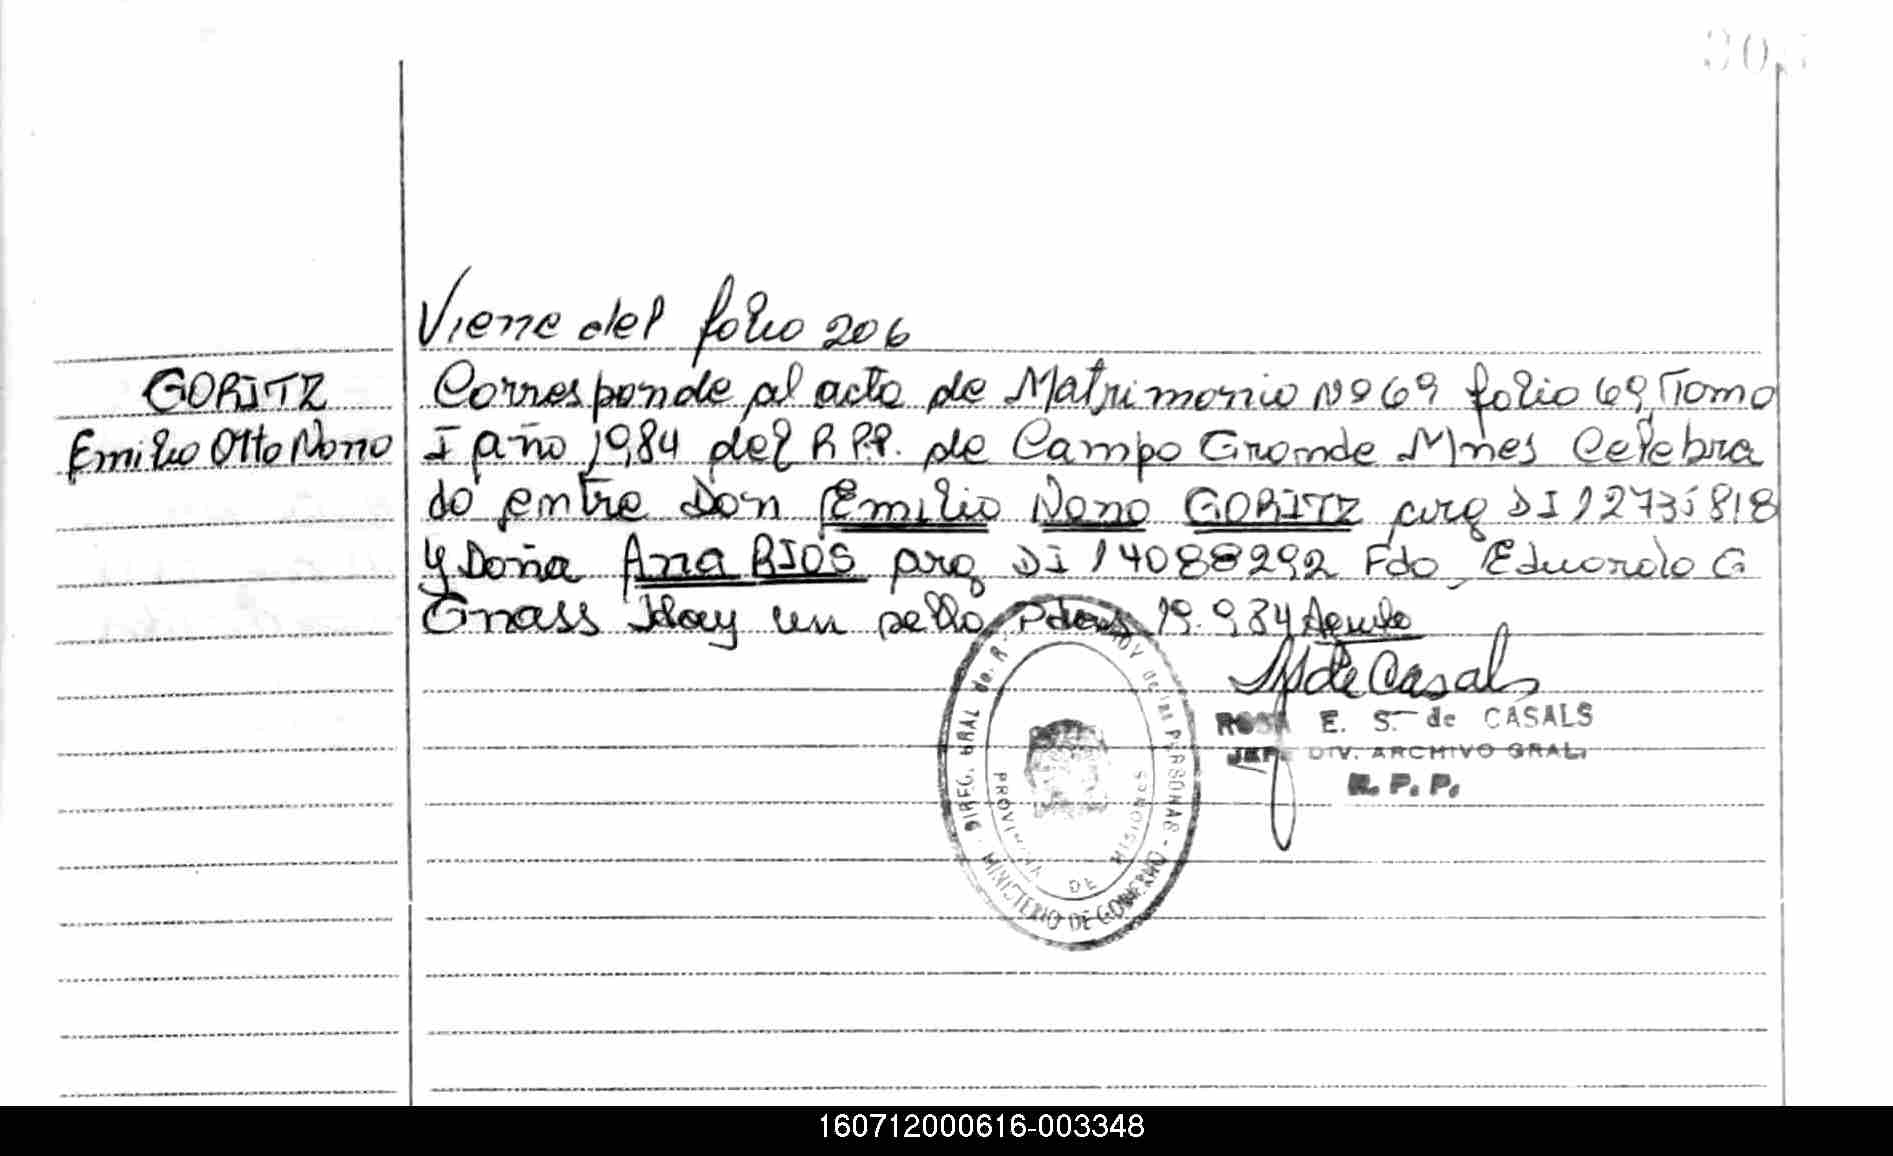 Viene del folio 206
GORITZ
Corresponde al acta de Matrimonio Nº 69 folio 69 Tomo
Emilio Otto Nono
I año 1984 del R.P.P. de Campo Grande Mnes Celebra
do entre Don Emilio Nono GORITZ arg DI 12735818
y Doña Ana RIOS arg DI 14088292 Fdo Eduardo G
Gnass Hay un sello Pdas 19.9.84
M de Casals
ROSA E. S. de CASALS
JEFE DIV. ARCHIVO GRAL.
R. P. P.
DIREC. GRAL de R. de las PERSONAS - MINISTERIO DE GOBIERNO
PROVINCIA DE MISIONES
160712000616-003348